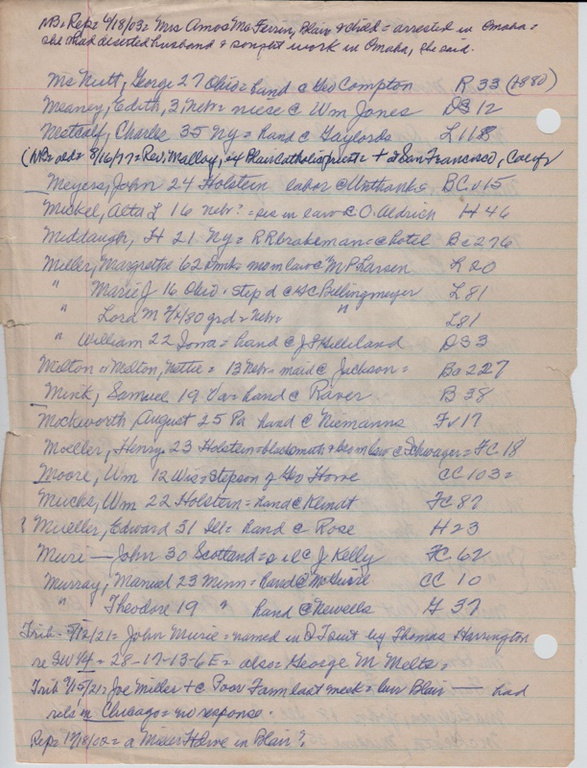 NB = Rep = 6/18/03 = Mrs Amos McFerrin, Blair & child = arrested in Omaha =
she had deserted husband & sought work in Omaha, she said.
McNutt, George 27 Ohio = hand c Geo Compton R 33 (1880)
Meaney, Edith, 3, Nebr = niese c Wm Jones DS 12
Metcalf, Charles 35 Ny = hand c Gaylords L 118
(NB = old = 8/16/77 = Rev. Malloy, is Blair Catholic priest + to San Francisco, Calif
Meyers, John 24 Holstein labor @ Unthanks BCv 15
Mickel, Alta L 16 Nebr? = sis in law c O. Aldrich H 46
Middaugh, H 21 Ny = RR brakeman = c hotel Ba 276
Miller, Margrethe 62 Dmk = mom law c M P Larsen R 20
" Marie J 16 Ohio = step d c HC Billingmeyer L 81
" Lora M 7/4/80 grd = Nebr " L81
" William 22 Iowa = hand c J F Hilleland DS3
Molton or Melton, Nettie = 13 Nebr = maid c Jackson = Ba 227
Mink, Samuel 19 Va = hand c Raver B 38
Mockeworth, August 25 Pa hand c Niemanns Fv 17
Moeller, Henry 23 Holstein = blacksmith = bro in law c Schwager = FC 18
Moore, Wm 12 Wis = Stepson of Geo Howe CC 103 =
Mucks, Wm 22 Holstein = hand c Klindt FC 87
? Mueller, Edward 31 Del = hand c Rose H 23
Muri — John 30 Scotland = c J Kelly FC 62
Murray, Manuel 23 Minn = hand @ McGuire CC 10
" Theodore 19 " hand c Newells F 37
Trib = 7/12/21 = John Murie = named in QT suit by Thomas Harrington
re SW 1/4 = 28-17-13-6E = also = George M Meltz =
Trib 9/15/21 = Joe Miller + c Poor Farm last week = bur Blair — had
rels in Chicago = no response.
Rep = 12/18/02 = a Miller Home in Blair?